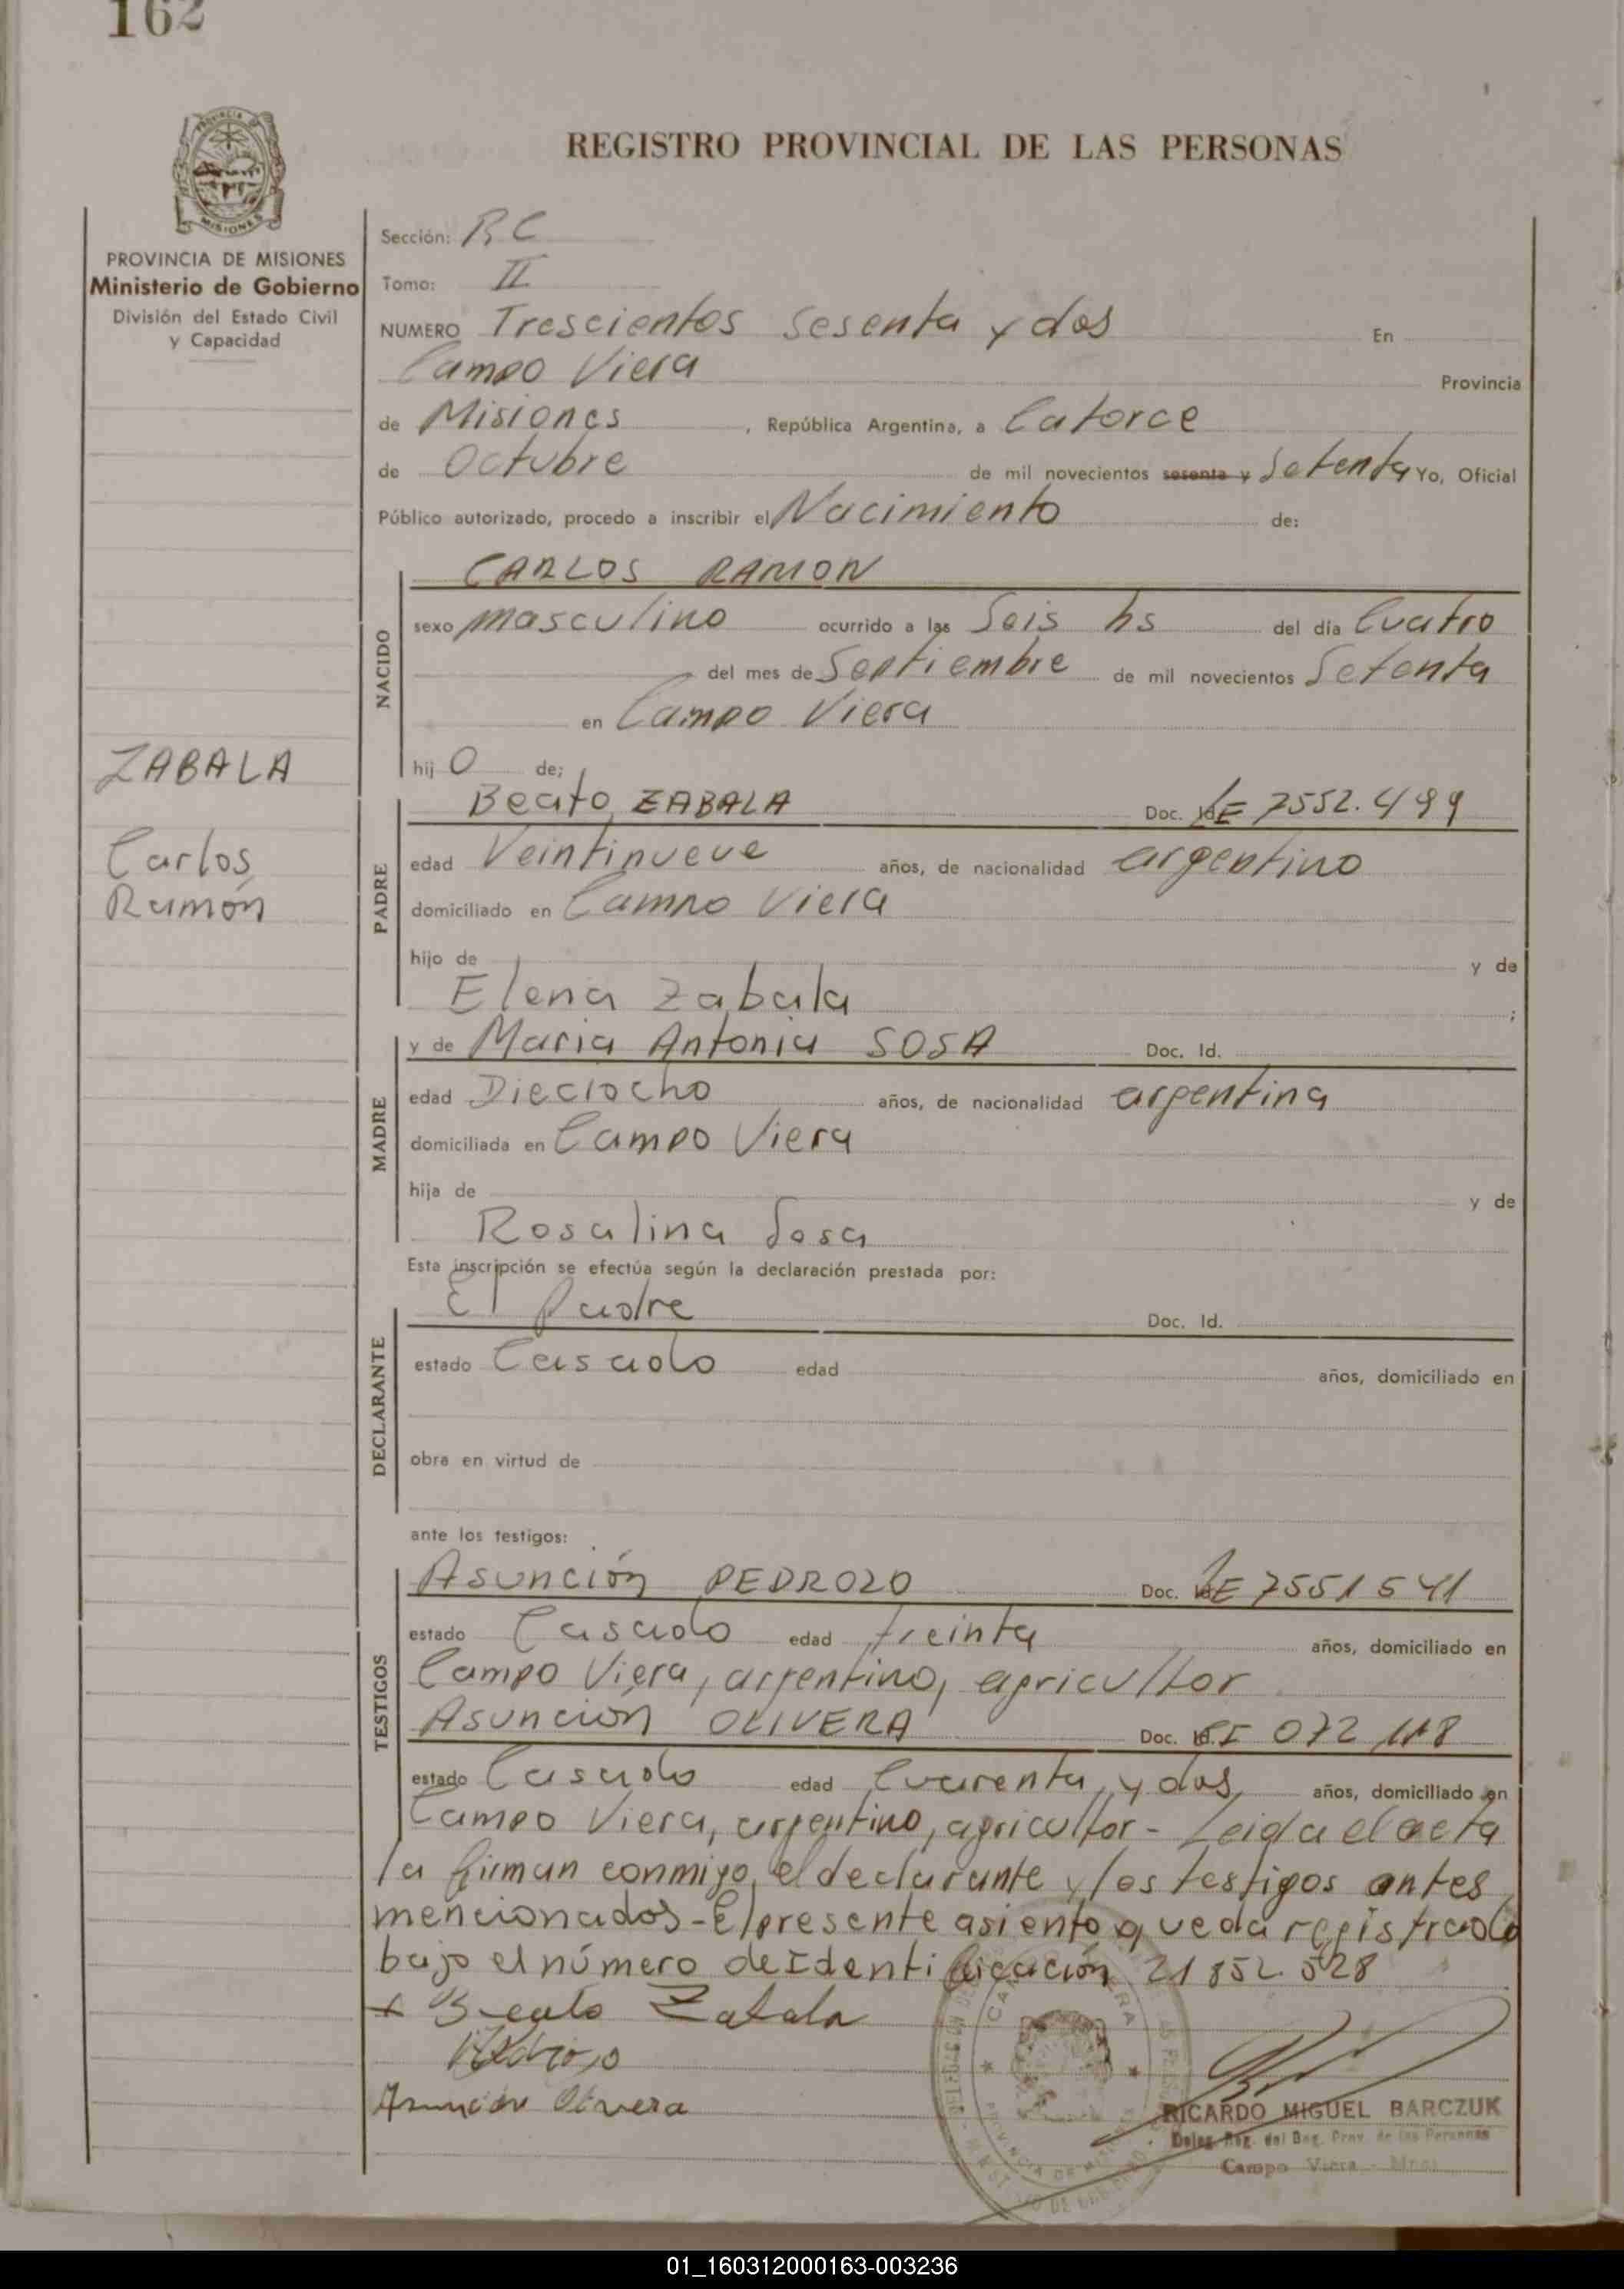 162
REGISTRO PROVINCIAL DE LAS PERSONAS
PROVINCIA DE MISIONES
Ministerio de Gobierno
División del Estado Civil
y Capacidad
ZABALA
Carlos
Ramón
Sección: RC
Tomo: II
NUMERO Trescientos Sesenta y dos En
Campo Viera Provincia
de Misiones, República Argentina, a Catorce
de Octubre de mil novecientos sesenta y Setenta Yo, Oficial
Público autorizado, procedo a inscribir el Nacimiento de:
NACIDO
CARLOS RAMON
sexo masculino ocurrido a las Seis hs del día Cuatro
del mes de Septiembre de mil novecientos Setenta
en Campo Viera
hij O de;
PADRE
Beato ZABALA Doc. LE 7552.499
edad Veintinueve años, de nacionalidad argentino
domiciliado en Campo Viera
hijo de y de
Elena Zabala ;
MADRE
y de Maria Antonia SOSA Doc. Id.
edad Dieciocho años, de nacionalidad argentina
domiciliada en Campo Viera
hija de y de
Rosalina Sosa
Esta inscripción se efectúa según la declaración prestada por:
DECLARANTE
El Padre Doc. Id.
estado Casado edad años, domiciliado en
obra en virtud de
ante los testigos:
TESTIGOS
Asunción PEDROZO Doc. LE 7551541
estado Casado edad treinta años, domiciliado en
Campo Viera, argentino, agricultor
Asunción OLIVERA Doc. CI 072 118
estado Casado edad Cuarenta y dos años, domiciliado en
Campo Viera, argentino, agricultor - Leida el acta
la firman conmigo, el declarante y los testigos antes
mencionados - El presente asiento queda registrado
bajo el número de Identificación 21 852.528
Beato Zabala
Pedrozo
Asunción Olivera
RICARDO MIGUEL BARCZUK
Deleg. Reg. del Reg. Prov. de las Personas
Campo Viera - Mnes
01_160312000163-003236